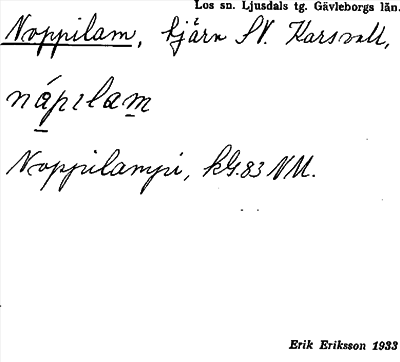 Los sn. Ljusdals tg. Gävleborgs län.
Noppilam, tjärn SV. Karsvall,
nápılam
Noppilampi, kG.83 NM.
Erik Eriksson 1933